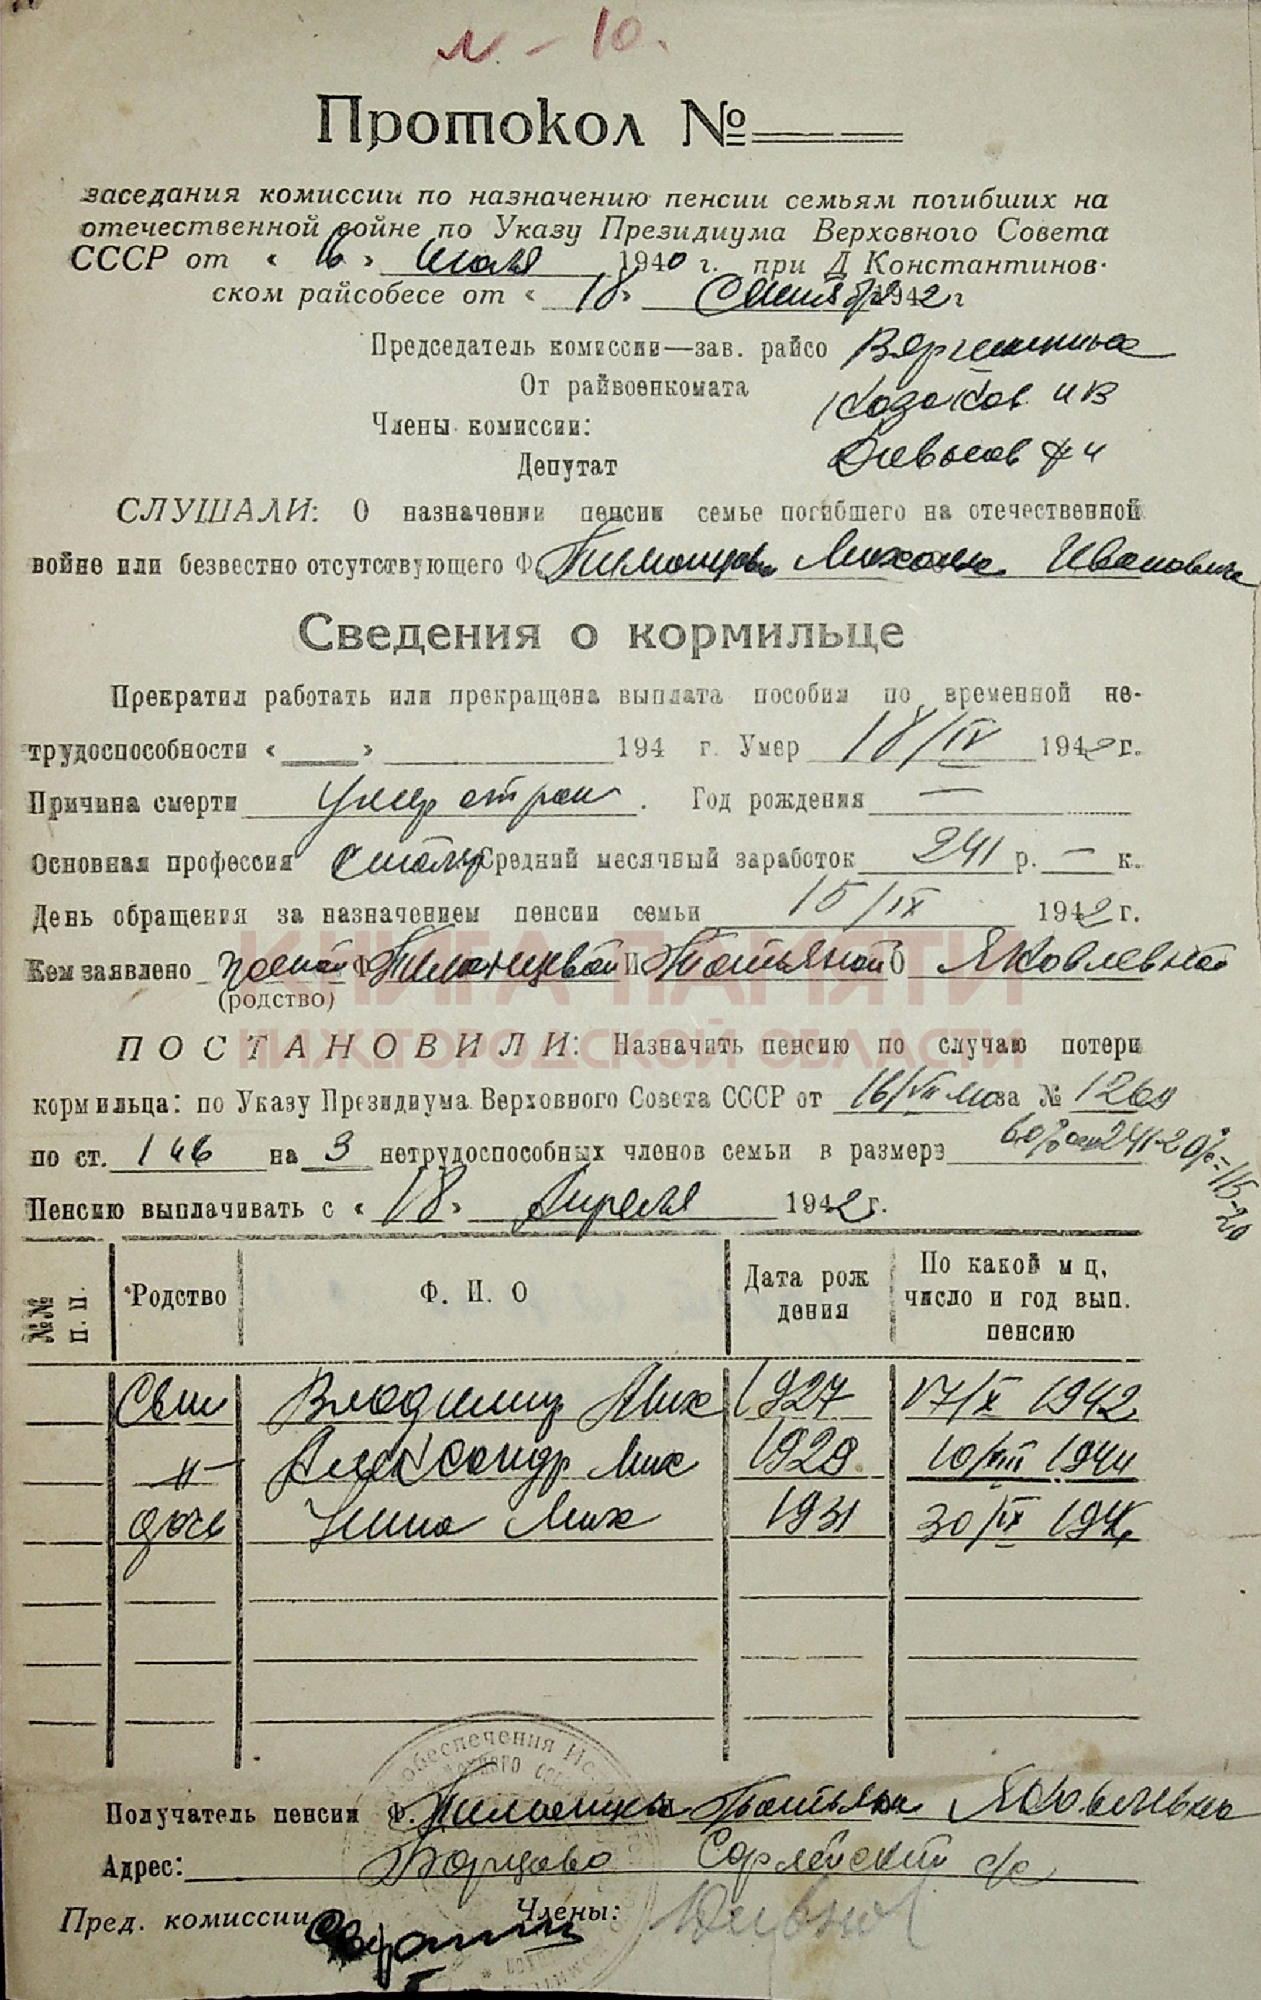 N - 10.
Протокол №
заседания комиссии по назначению пенсии семьям погибших на
отечественной войне по Указу Президиума Верховного Совета
СССР от « 16 » июля 1940 г. при Д Константинов-
ском райсобесе от « 18 » Сентября 1942 г
Председатель комиссии—зав. райсо
От райвоенкомата Казаков ИВ
Члены комиссии:
Депутат
СЛУШАЛИ: О назначении пенсии семье погибшего на отечественной
войне или безвестно отсутствующего Ф. Михаила Ивановича
Сведения о кормильце
Прекратил работать или прекращена выплата пособия по временной не-
трудоспособности « » 194 г. Умер 18/IV 1942 г.
Причина смерти Умер от ран. Год рождения —
Основная профессия столяр Средний месячный заработок 241 р. — к.
День обращения за назначением пенсии семьи 15/IX 1942 г.
Кем заявлено женой Ф. И Татьяной О Яковлевной
(родство)
КНИГА ПАМЯТИ
НИЖЕГОРОДСКОЙ ОБЛАСТИ
ПОСТАНОВИЛИ: Назначить пенсию по случаю потери
кормильца: по Указу Президиума Верховного Совета СССР от 16/VII 40 за № 1269
по ст. 146 на 3 нетрудоспособных членов семьи в размере 60% 241-20% = 115-20
Пенсию выплачивать с « 18 » Апреля 1942 г.
№№ п. п. Родство Ф. И. О Дата рождения По какой м ц, число и год вып. пенсию
Сын Владимир Мих 1927 17/X 1942
-"- Александр Мих 1929 10/VIII 1944
дочь Нина Мих 1931 30/IX 1946
Получатель пенсии Ф. Татьяна Яковлевна
Адрес: Борцово с/с
Пред. комиссии Члены: